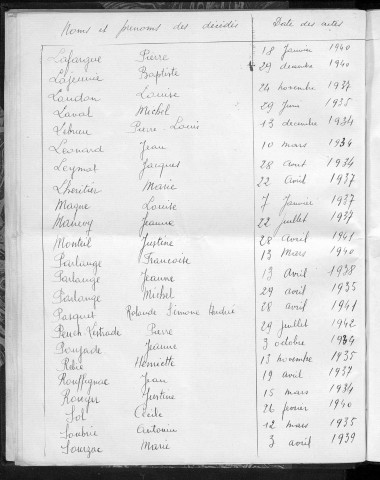 Noms et prénoms des décédés Date des actes
Lafargue Pierre 18 Janvier 1940
Lajeunie Baptiste 29 décembre 1940
Landon Louise 24 novembre 1937
Laval Michel 29 Juin 1935
Pierre Louis 13 décembre 1934
Léonard Jean 10 mars 1934
Leymat Jacques 28 Aout 1934
Lheritier Marie 22 Avril 1937
Magne Louise 7 Janvier 1937
Jeanne 22 juillet 1937
Monteil Justine 28 Avril 1941
Parlange Francoise 13 Mars 1940
Parlange Jeanne 13 Avril 1938
Parlange Michel 29 avril 1935
Pasquet Rolande Simone 28 avril 1941
Peuch-Lestrade Pierre 29 juillet 1942
Poujade Jeanne 3 octobre 1934
Henriette 13 novembre 1935
Rouffignac Jean 19 avril 1937
Justine 15 mars 1934
Sol Cécile 26 février 1940
Soubrie Antonin 12 mars 1935
Sourzac Marie 3 avril 1939